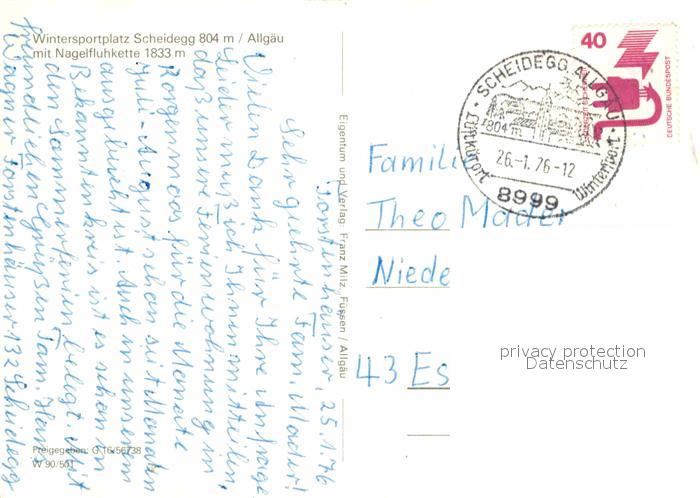 Wintersportplatz Scheidegg 804 m / Allgäu
mit Nagelfluhkette 1833 m
Forstenhäuser, 25.1.76
Sehr geehrte Fam. Mader!
Vielen Dank für Ihre Anfrage
Leider muß ich Ihnen mitteilen,
daß unsere Ferienwohnung in
für die Monate
Juli-August schon seit Monaten
ausgebucht ist. Auch in unserem
Bekanntenkreis ist es schon in
den Sommerferien belegt. Mit
freundlichen Grüßen Fam. Hans
Wagner Forstenhäuser 132 Scheidegg
Preigegeben: G 16/56738
W 90/501
Eigentum und Verlag: Franz Milz, Füssen / Allgäu
40
DEUTSCHE BUNDESPOST
SCHEIDEGG, ALLGÄU
804 m
26.-1.76-12
Luftkurort
Wintersport
8999
Famili
Theo Mader
Niede
43 Es
privacy protection
Datenschutz